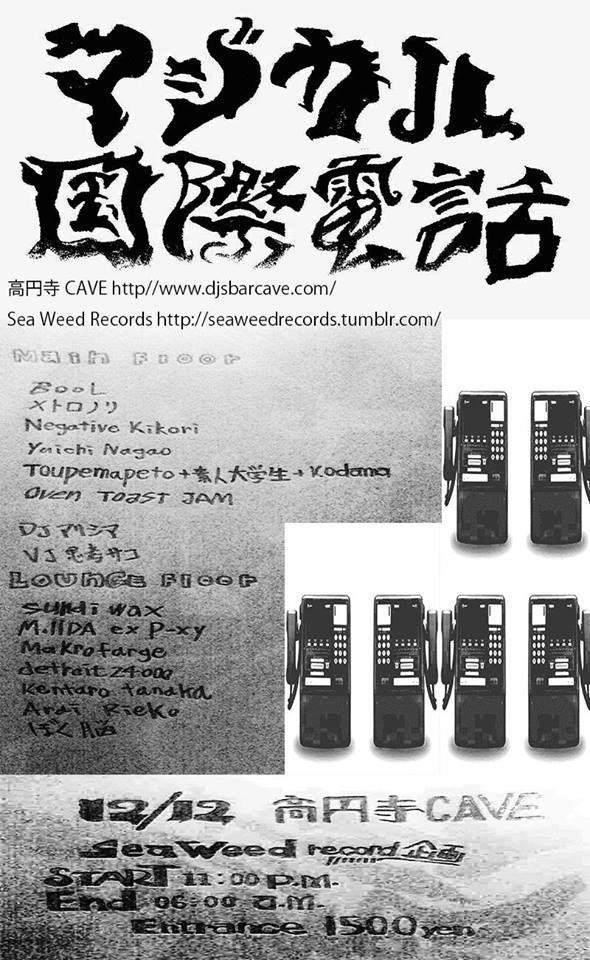 マジカル
国際電話
高円寺 CAVE http//www.djsbarcave.com/
Sea Weed Records http://seaweedrecords.tumblr.com/
Main Floor
BooL
メトロノリ
Negative Kikori
Yuichi Nagao
Toupemapeto+素人大学生+Kodama
Oven Toast JAM
DJマツシマ
VJ思考サコ
Lounge Floor
sundi wax
M.IIDA ex P-xy
Makrofarge
detrait 24-000
Kentaro tanaka
Arai Rieko
ぼく脳
12/12 高円寺CAVE
SeaWeed record 企画
START 11:00 P.M.
End 06:00 a.m.
Entrance 1500 yen